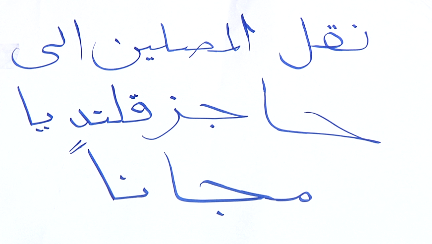 نقل المصلين الى
حاجز قلنديا
مجاناً